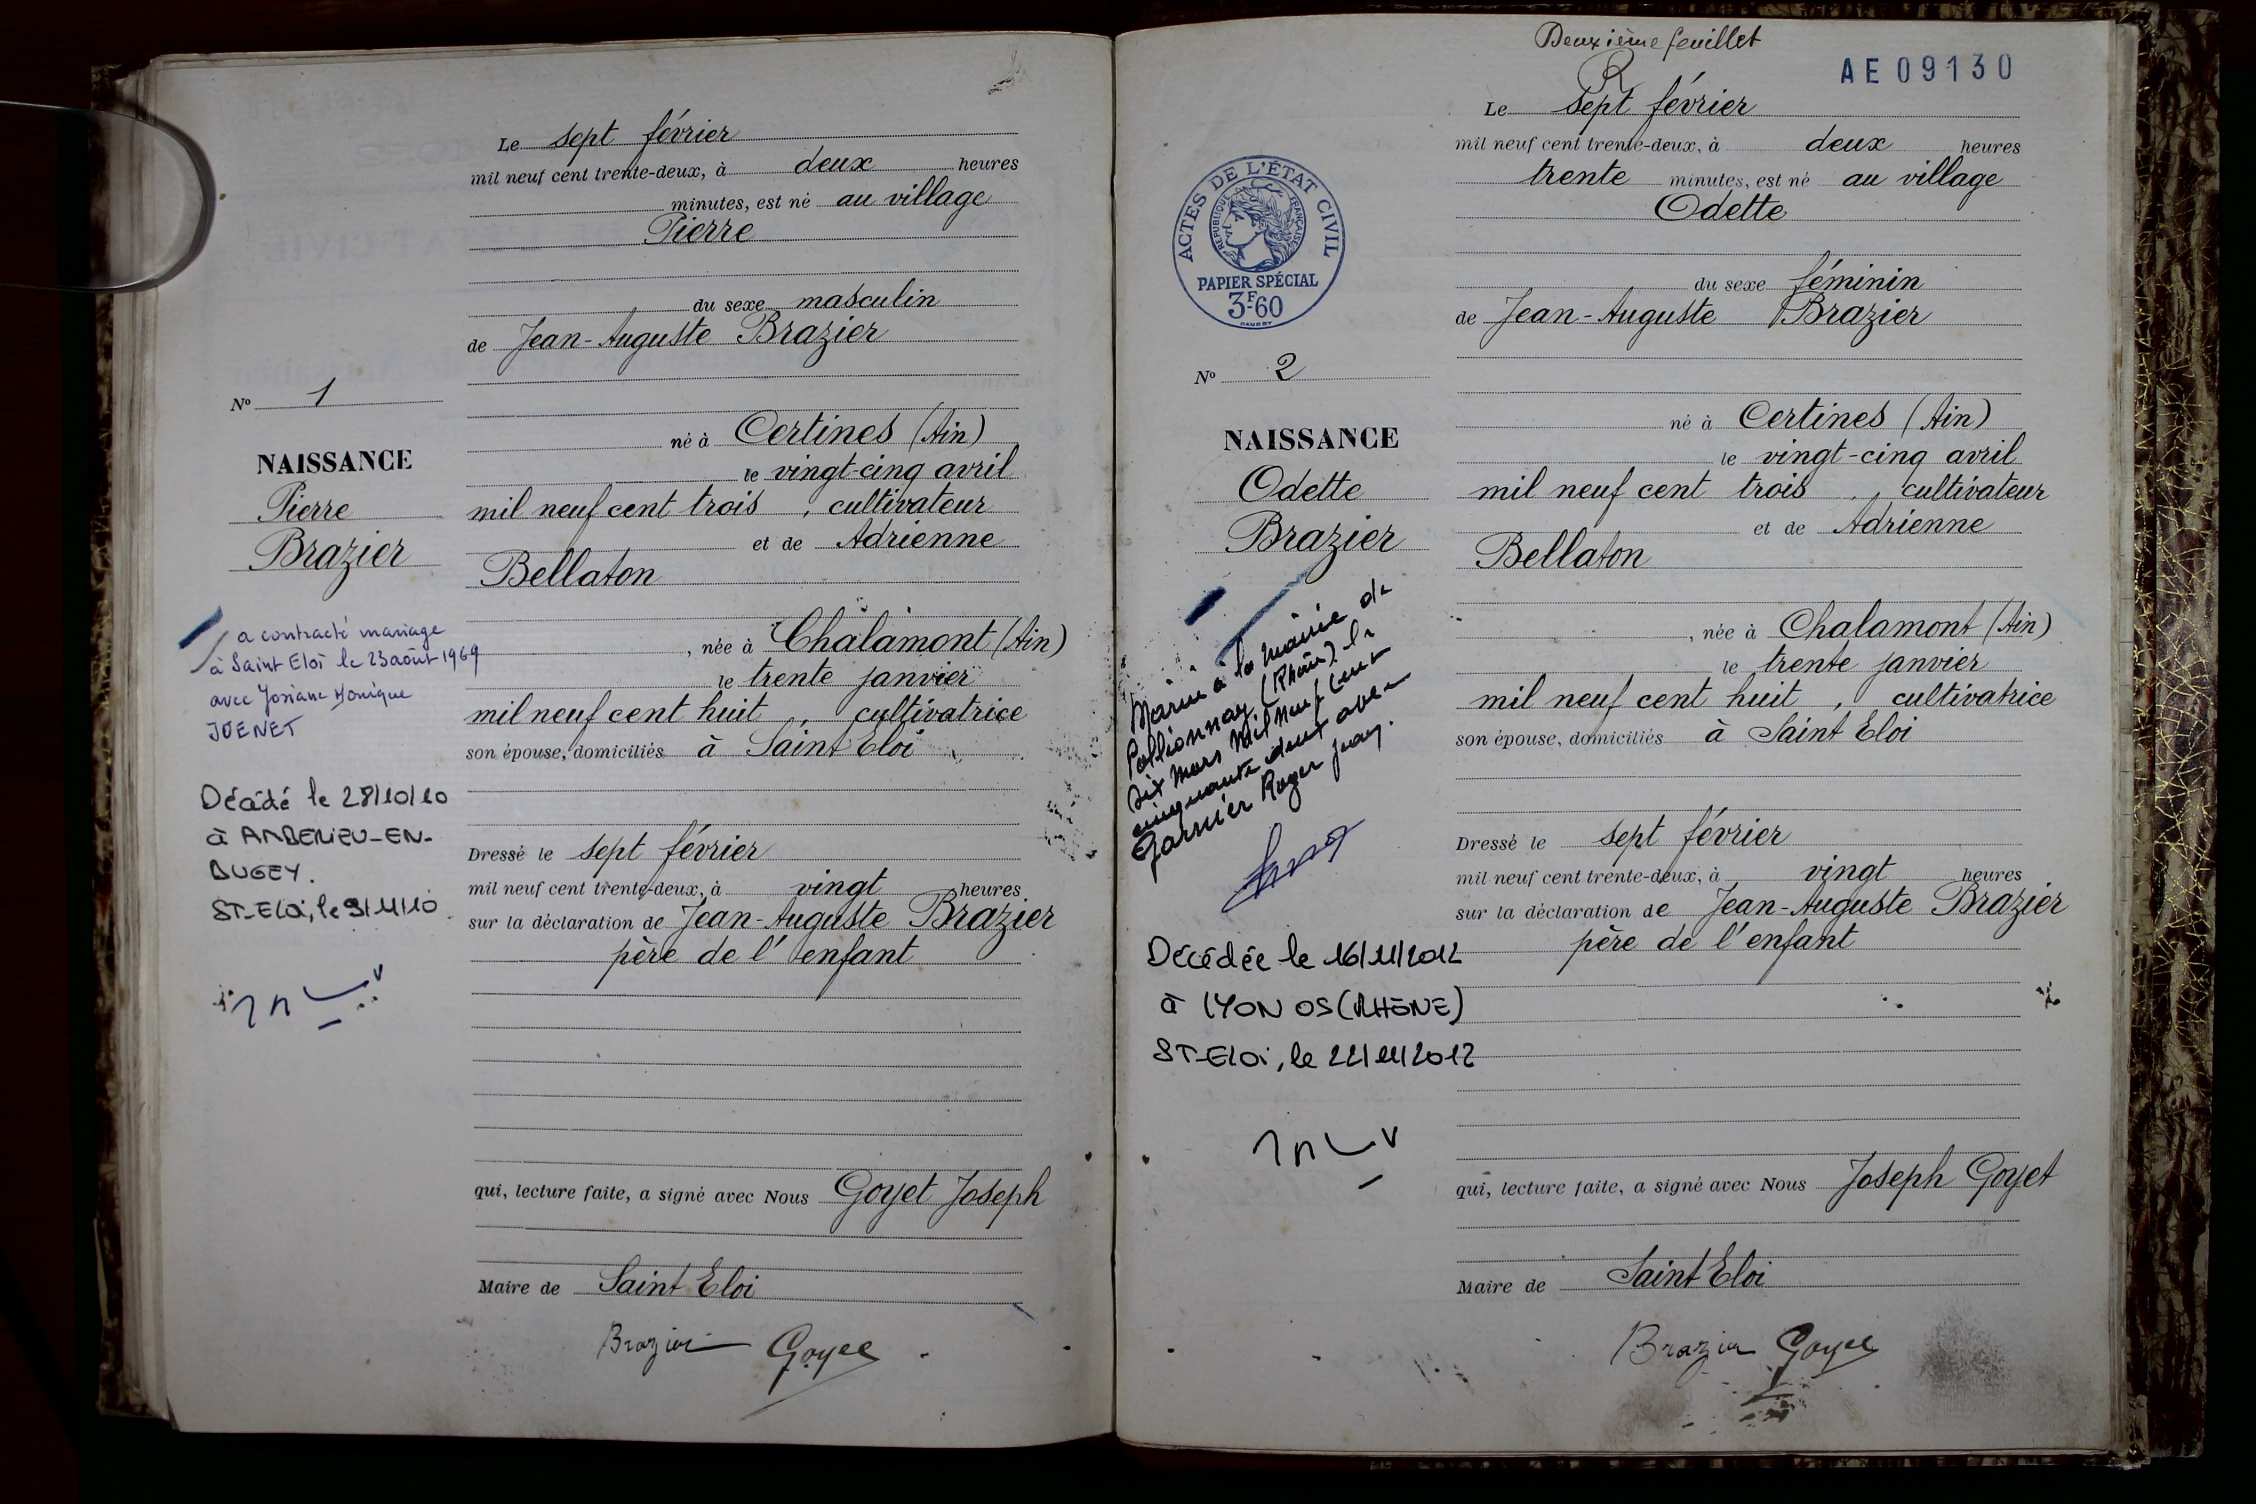 Le sept février
mil neuf cent trente-deux, à deux heures
minutes, est né au village
Pierre
du sexe masculin
de Jean-Auguste Brazier
né à Certines (Ain)
le vingt-cinq avril
mil neuf cent trois, cultivateur
et de Adrienne
Bellaton
, née à Chalamont (Ain)
le trente janvier
mil neuf cent huit, cultivatrice
son épouse, domiciliés à Saint Eloi
Dressé le sept février
mil neuf cent trente-deux, à vingt heures
sur la déclaration de Jean-Auguste Brazier
père de l'enfant
qui, lecture faite, a signé avec Nous Goyet Joseph
Maire de Saint Eloi
Brazier Goyet
No 1
NAISSANCE
Pierre
Brazier
a contracté mariage
à Saint Eloi le 23 août 1969
avec Josiane Monique
JOENET
Décédé le 28/10/10
à AMBERIEU-EN-
BUGEY.
ST-Eloi, le 9/11/10
Deuxième feuillet
R
AE 09130
Le sept février
mil neuf cent trente-deux, à deux heures
trente minutes, est né au village
Odette
du sexe féminin
de Jean-Auguste Brazier
né à Certines (Ain)
le vingt-cinq avril
mil neuf cent trois, cultivateur
et de Adrienne
Bellaton
, née à Chalamont (Ain)
le trente janvier
mil neuf cent huit, cultivatrice
son épouse, domiciliés à Saint Eloi
Dressé le sept février
mil neuf cent trente-deux, à vingt heures
sur la déclaration de Jean-Auguste Brazier
père de l'enfant
qui, lecture faite, a signé avec Nous Joseph Goyet
Maire de Saint Eloi
Brazier Goyet
ACTES DE L'ÉTAT CIVIL
REPUBLIQUE FRANÇAISE
PAPIER SPÉCIAL
3F60
No 2
NAISSANCE
Odette
Brazier
Mariée à la Mairie de
Pollionnay (Rhône) le
dix Mars Mil Neuf Cent
cinquante deux avec
Garnier Roger Jean.
Décédée le 16/11/2012
à LYON 05 (RHÔNE)
ST-Eloi, le 22/11/2012